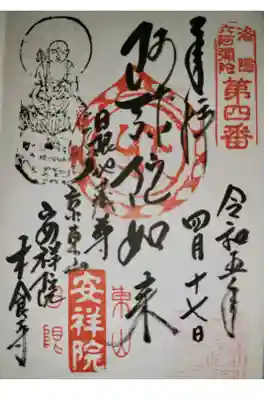 洛陽
六阿弥陀
第四番
奉拝
阿弥陀如来
日限地蔵尊
京東山
安祥院
木食寺
安祥院
東山
日限
令和五年
四月十七日